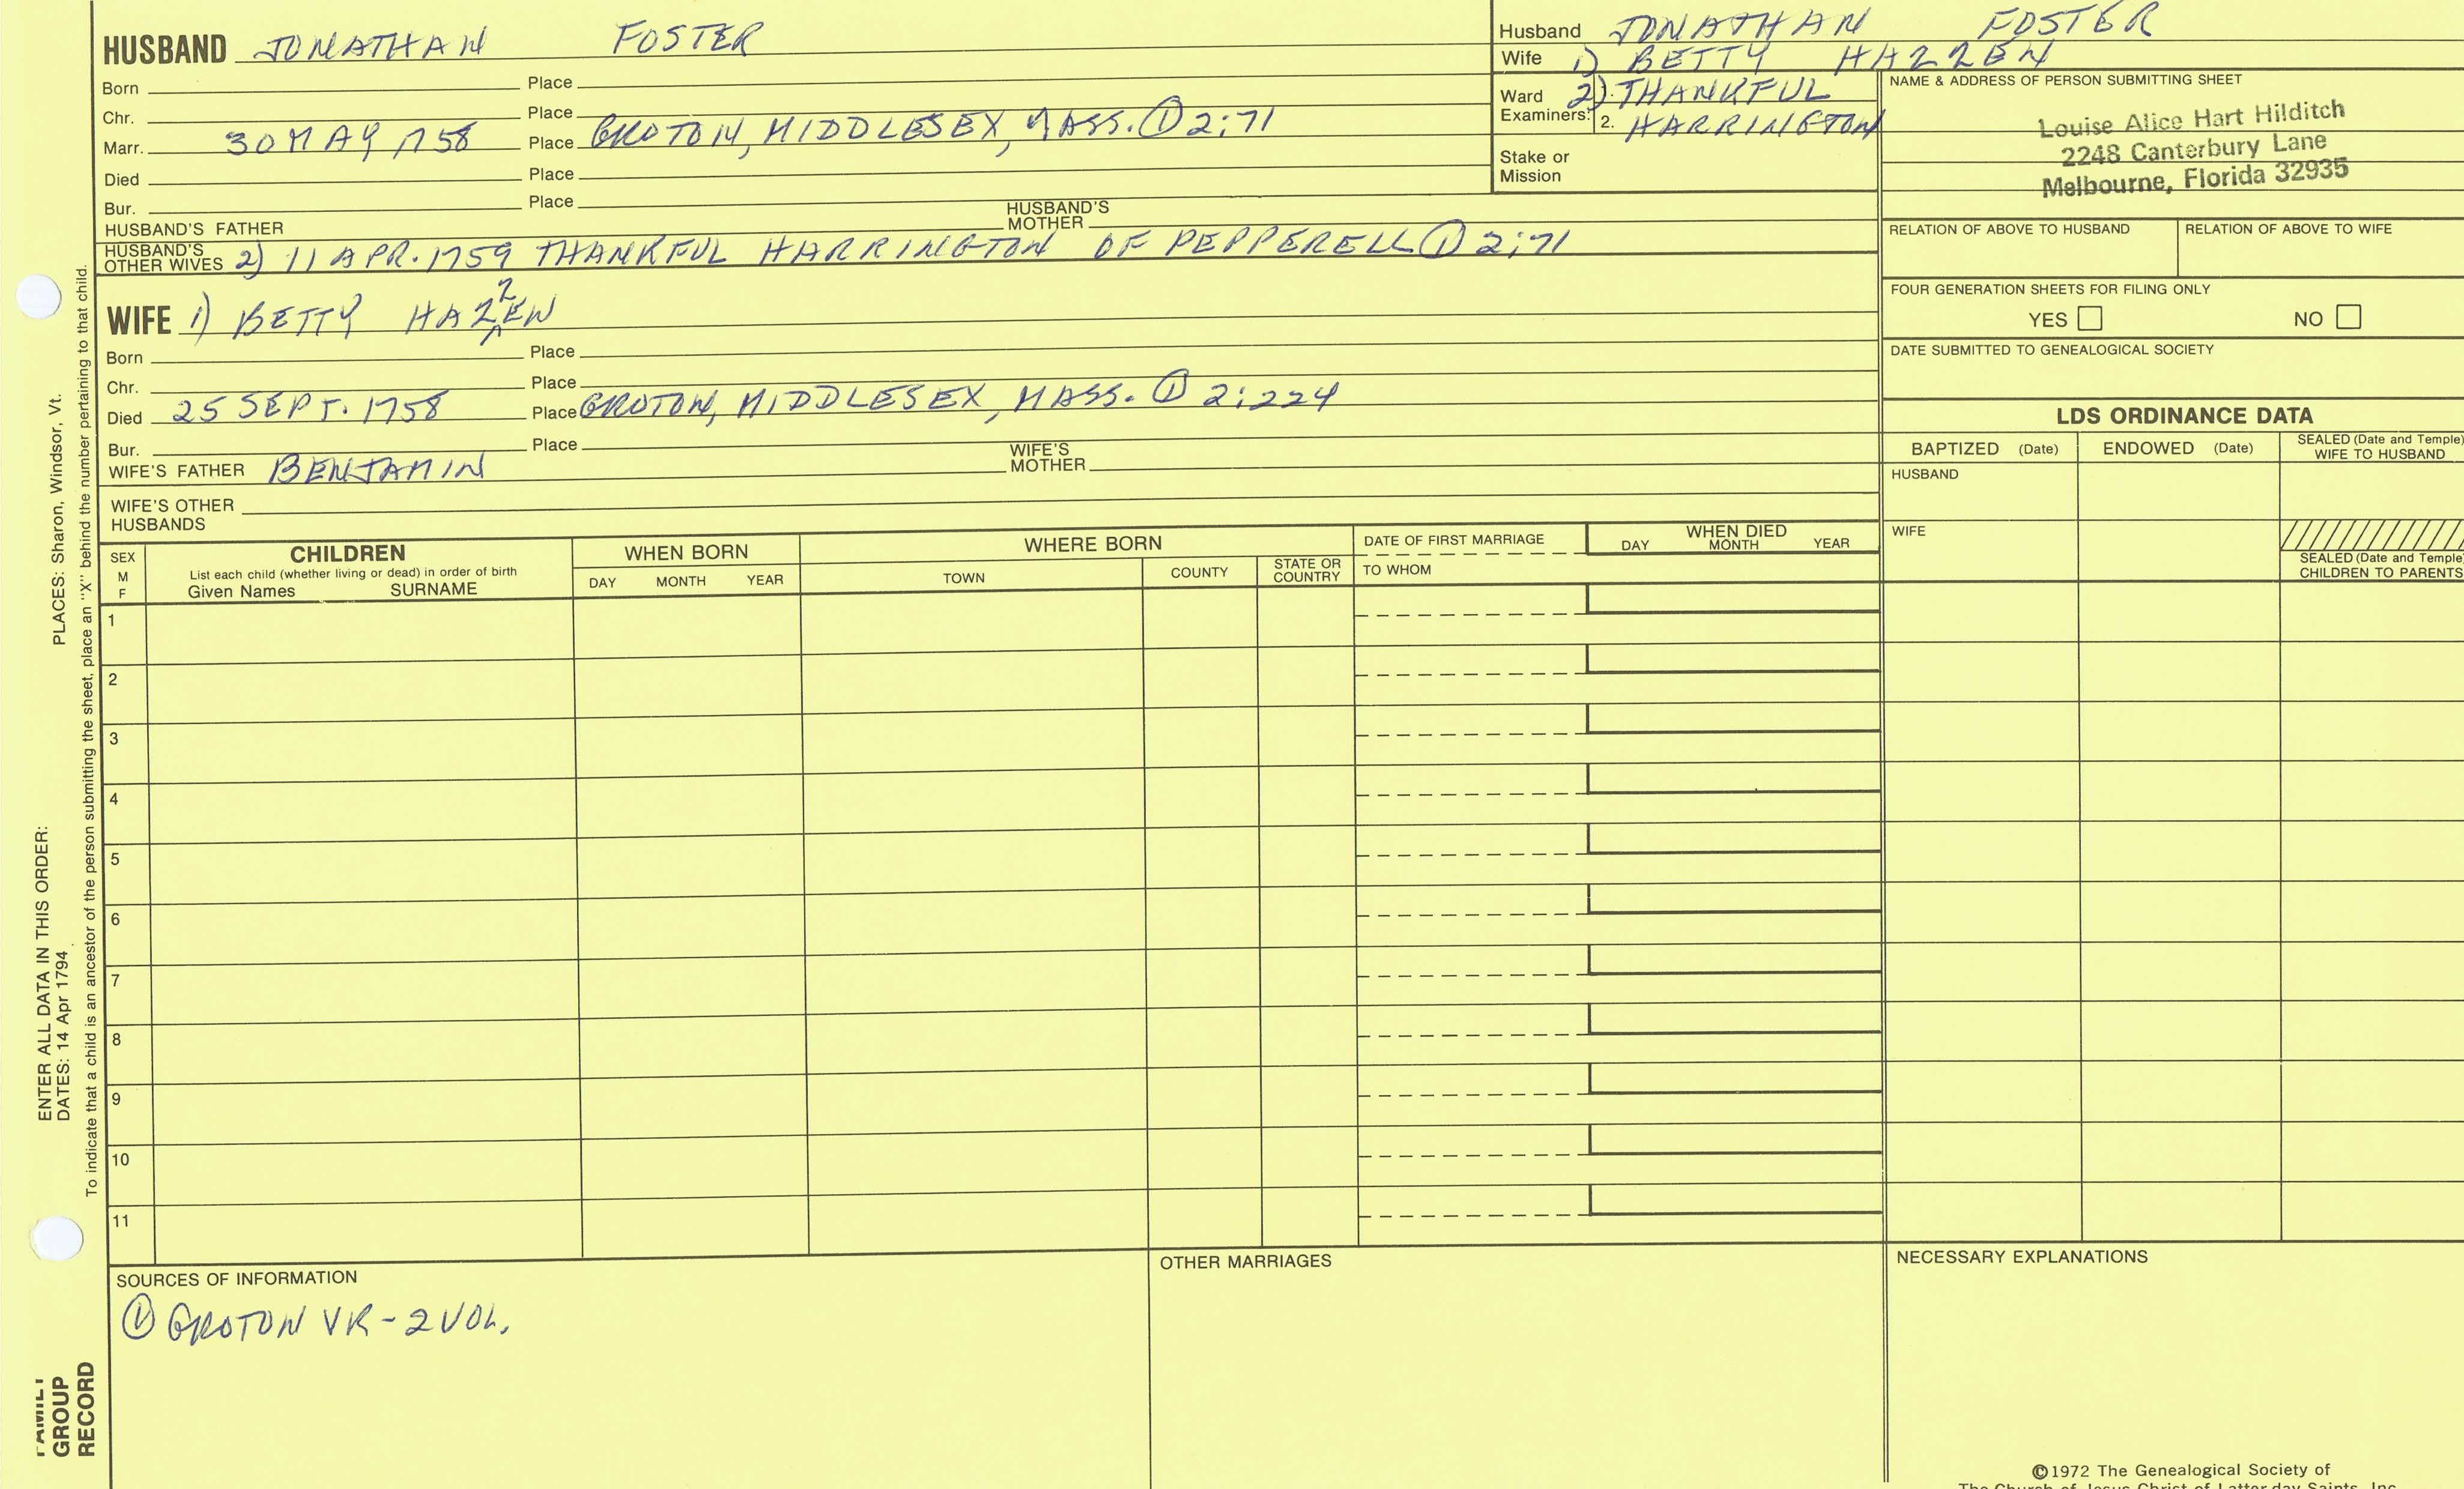 HUSBAND JONATHAN FOSTER
Born Place
Chr. Place
Marr. 30 MAY 1758 Place GROTON, MIDDLESEX, MASS. ① 2:71
Died Place
Bur. Place
HUSBAND'S FATHER HUSBAND'S MOTHER
HUSBAND'S OTHER WIVES 2) 11 APR. 1759 THANKFUL HARRINGTON OF PEPPERELL ① 2:71
WIFE 1) BETTY HAZZEN
Born Place
Chr. Place
Died 25 SEPT. 1758 Place GROTON, MIDDLESEX, MASS. ① 2:224
Bur. Place
WIFE'S FATHER BENJAMIN WIFE'S MOTHER
WIFE'S OTHER HUSBANDS
Husband JONATHAN FOSTER
Wife 1) BETTY HAZZEN
Ward 2) THANKFUL
Examiners: 2. HARRINGTON
Stake or
Mission
NAME & ADDRESS OF PERSON SUBMITTING SHEET
Louise Alice Hart Hilditch
2248 Canterbury Lane
Melbourne, Florida 32935
RELATION OF ABOVE TO HUSBAND RELATION OF ABOVE TO WIFE
FOUR GENERATION SHEETS FOR FILING ONLY
YES NO
DATE SUBMITTED TO GENEALOGICAL SOCIETY
LDS ORDINANCE DATA
BAPTIZED (Date) ENDOWED (Date) SEALED (Date and Temple) WIFE TO HUSBAND
HUSBAND
WIFE
SEALED (Date and Temple) CHILDREN TO PARENTS
SEX M F
CHILDREN
List each child (whether living or dead) in order of birth
Given Names SURNAME
WHEN BORN
DAY MONTH YEAR
WHERE BORN
TOWN COUNTY STATE OR COUNTRY
DATE OF FIRST MARRIAGE
TO WHOM
WHEN DIED
DAY MONTH YEAR
1
2
3
4
5
6
7
8
9
10
11
SOURCES OF INFORMATION
① GROTON VR - 2 VOL.
OTHER MARRIAGES
NECESSARY EXPLANATIONS
©1972 The Genealogical Society of
The Church of Jesus Christ of Latter-day Saints, Inc.
ENTER ALL DATA IN THIS ORDER:
DATES: 14 Apr 1794
PLACES: Sharon, Windsor, Vt.
To indicate that a child is an ancestor of the person submitting the sheet, place an "X" behind the number pertaining to that child.
FAMILY
GROUP
RECORD